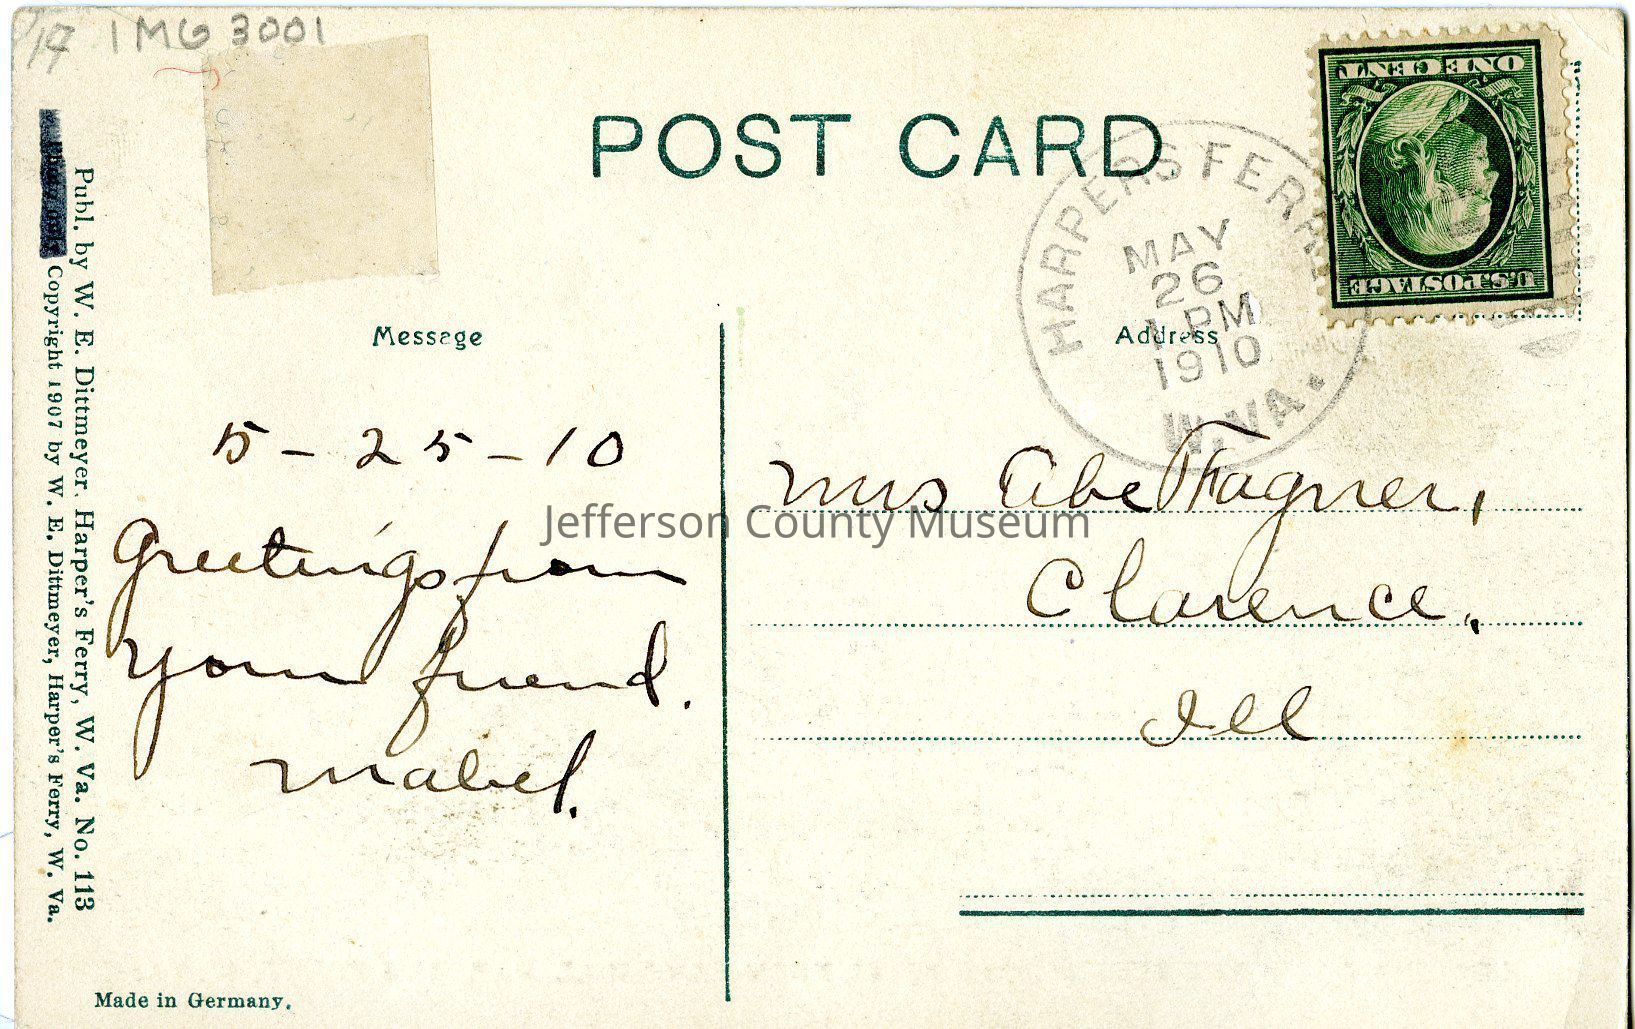 IMG 3001
POST CARD
HARPERS FERRY
MAY
26
1 PM
1910
W.VA.
ONE CENT
U.S. POSTAGE
Message
Address
5-25-10
Greetings from
your friend.
Mabel.
Mrs Abe Wagner,
Clarence,
Ill
Jefferson County Museum
Publ. by W. E. Dittmeyer. Harper's Ferry, W. Va. No. 113
Copyright 1907 by W. E. Dittmeyer, Harper's Ferry, W. Va.
Made in Germany.